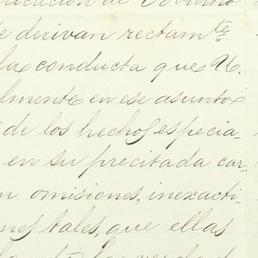 de Gobierno
e derivan rectamte
la conducta que U.
lmente en ese asunto
de los hechos especia-
en su precitada car-
n omisiones, inexacti-
nes tales, que ellas